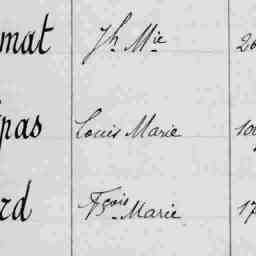 mat Jh Mie 26
pas Louis Marie 10
rd Fçois Marie 17